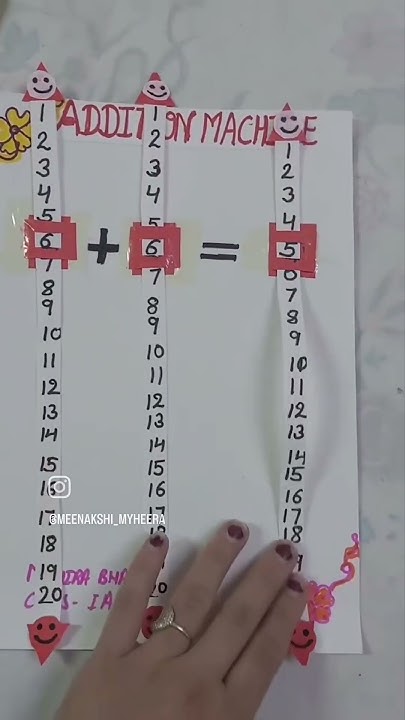 ADDITION MACHINE
1 1 1
2 2 2
3 3 3
4 4 4
5 5
6 + 6 = 5
7 7 6
8 8 7
9 9 8
10 10 9
11 11 10
12 12 11
13 13 12
14 14 13
15 15 14
16 16 15
17 17 16
18 18 17
19 18
20 20
@MEENAKSHI_MYHEERA